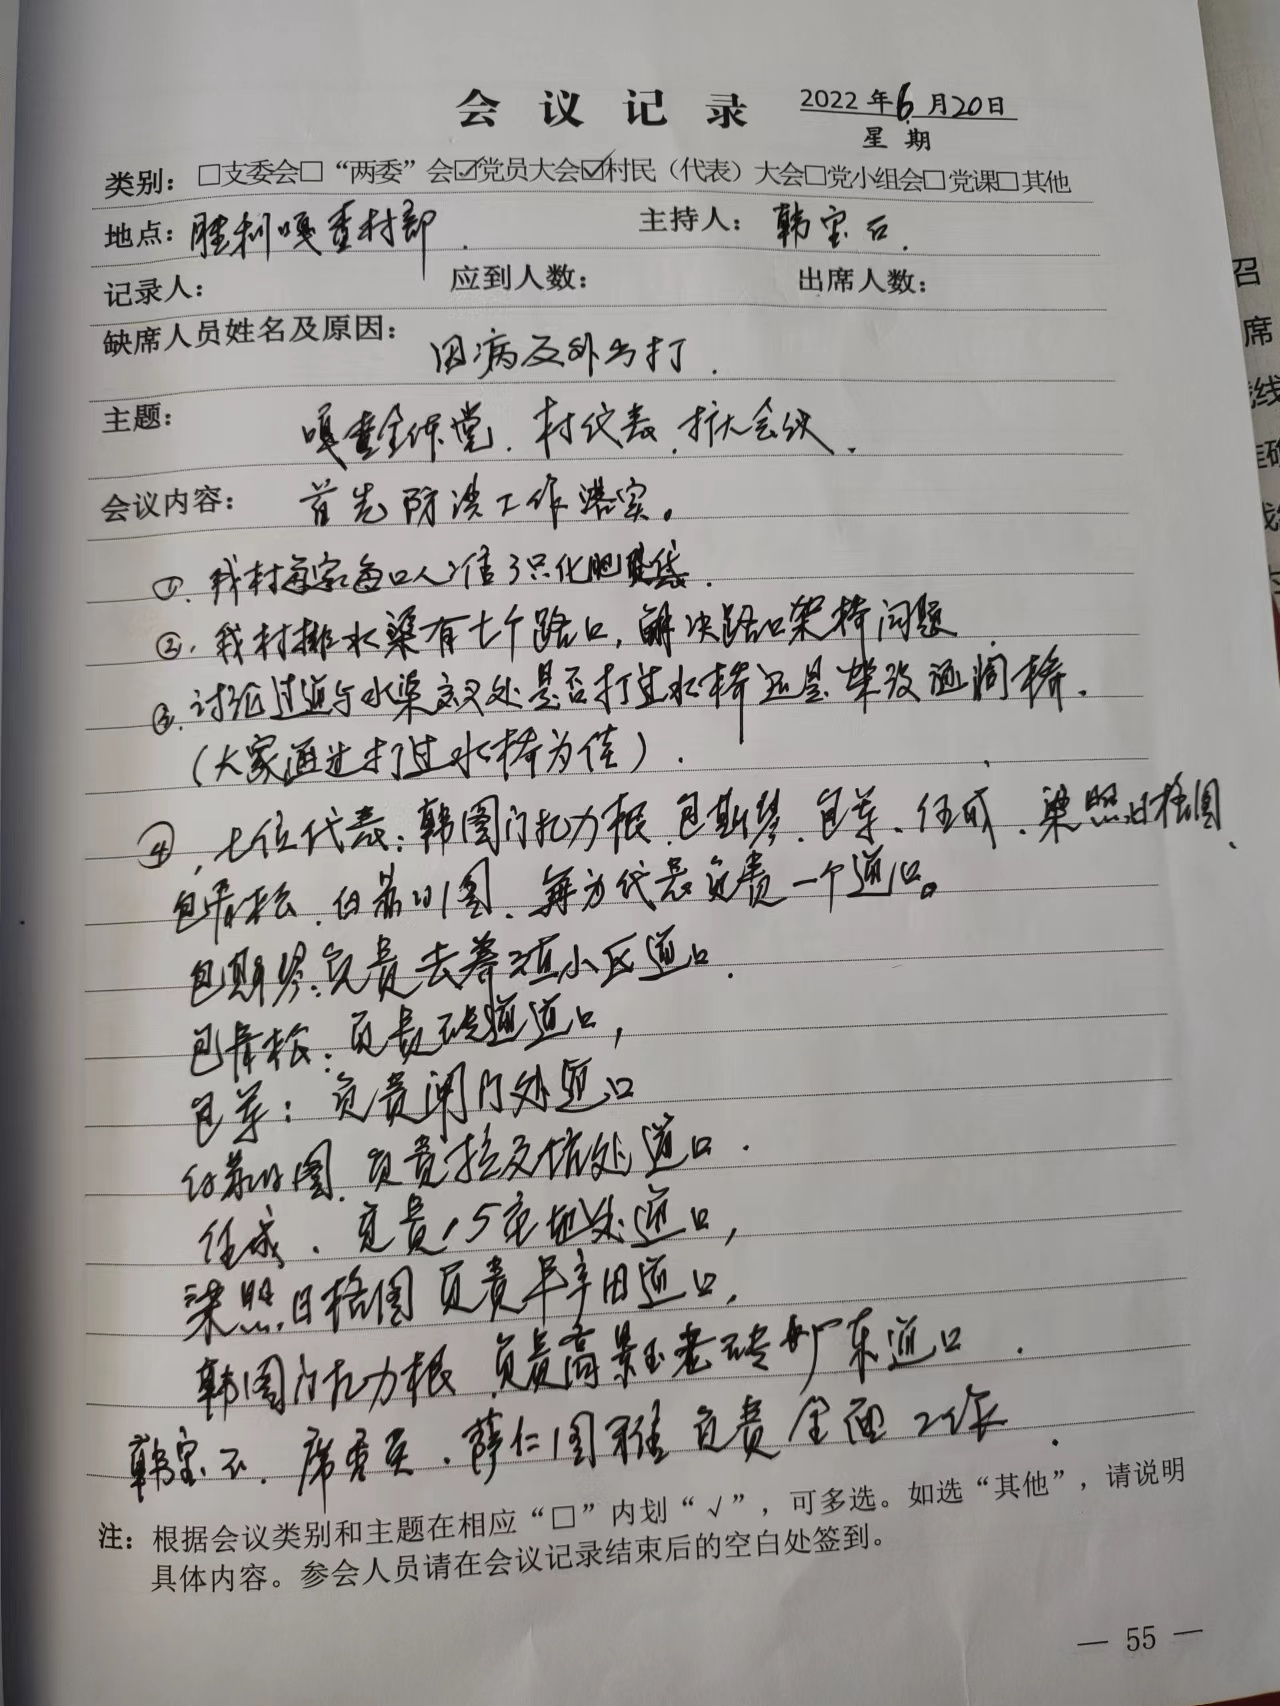 会议记录
2022年6月20日
星期
类别：□支委会□“两委”会☑党员大会☑村民（代表）大会□党小组会□党课□其他
地点：胜利嘎查村部. 主持人：韩宝石.
记录人： 应到人数： 出席人数：
缺席人员姓名及原因：因病及外出打.
主题：嘎查全体党、村代表、扩大会议.
会议内容：首先防洪工作落实。
①.我村每家每口人准备3只化肥袋.
②.我村排水渠有七个路口，解决路口架桥问题
③.讨论过道与水渠交叉处是否打过水桥还是架设涵洞桥.
（大家通过打过水桥为佳）.
④、七位代表：韩图门扎力根、包斯琴、包军、任成、梁照日格图、
包青松、白苏日图、每方代表负责一个道口。
包斯琴：负责去养殖小区道口.
包青松：负责砖道道口，
包军：负责闸门处道口
白苏日图、负责垃圾坑处道口.
任成、负责15亩地处道口，
梁照日格图 负责旱田道口，
韩图门扎力根 负责高景玉老砖厂东道口.
韩宝石、席、萨仁图雅 负责全面工作.
注：根据会议类别和主题在相应“□”内划“√”，可多选。如选“其他”，请说明
具体内容。参会人员请在会议记录结束后的空白处签到。
— 55 —
召
席
线